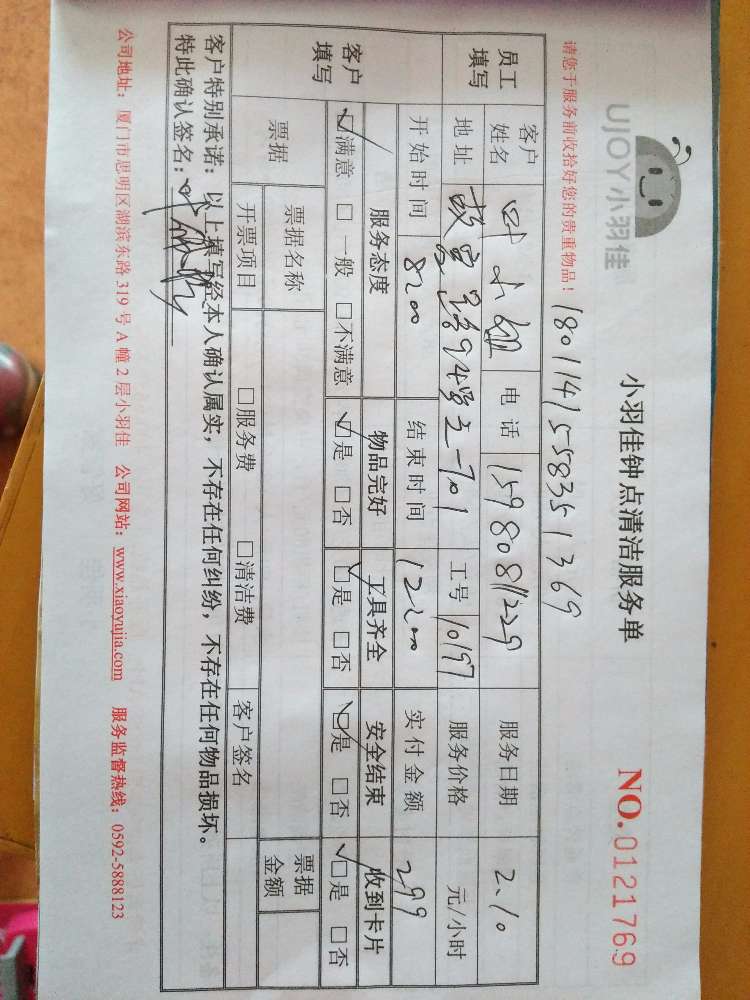 UJOY小羽佳
小羽佳钟点清洁服务单
NO.0121769
请您于服务前收拾好您的贵重物品！
1801141558351369
员工填写
客户姓名 叶小姐 电话 15980811229 服务日期 2.10
地址 故宫路94号之一701 工号 10197 服务价格 元/小时
开始时间 8:00 结束时间 12:00 实付金额 299
客户填写
服务态度 物品完好 工具齐全 安全结束 收到卡片
☑满意 □一般 □不满意 ☑是 □否 ☑是 □否 ☑是 □否 ☑是 □否
票据 票据名称 票据金额
开票项目 □服务费 □清洁费 客户签名
客户特别承诺：以上填写经本人确认属实，不存在任何纠纷，不存在任何物品损坏。
特此确认签名：
公司地址：厦门市思明区湖滨东路319号A幢2层小羽佳 公司网站：www.xiaoyujia.com 服务监督热线：0592-5888123